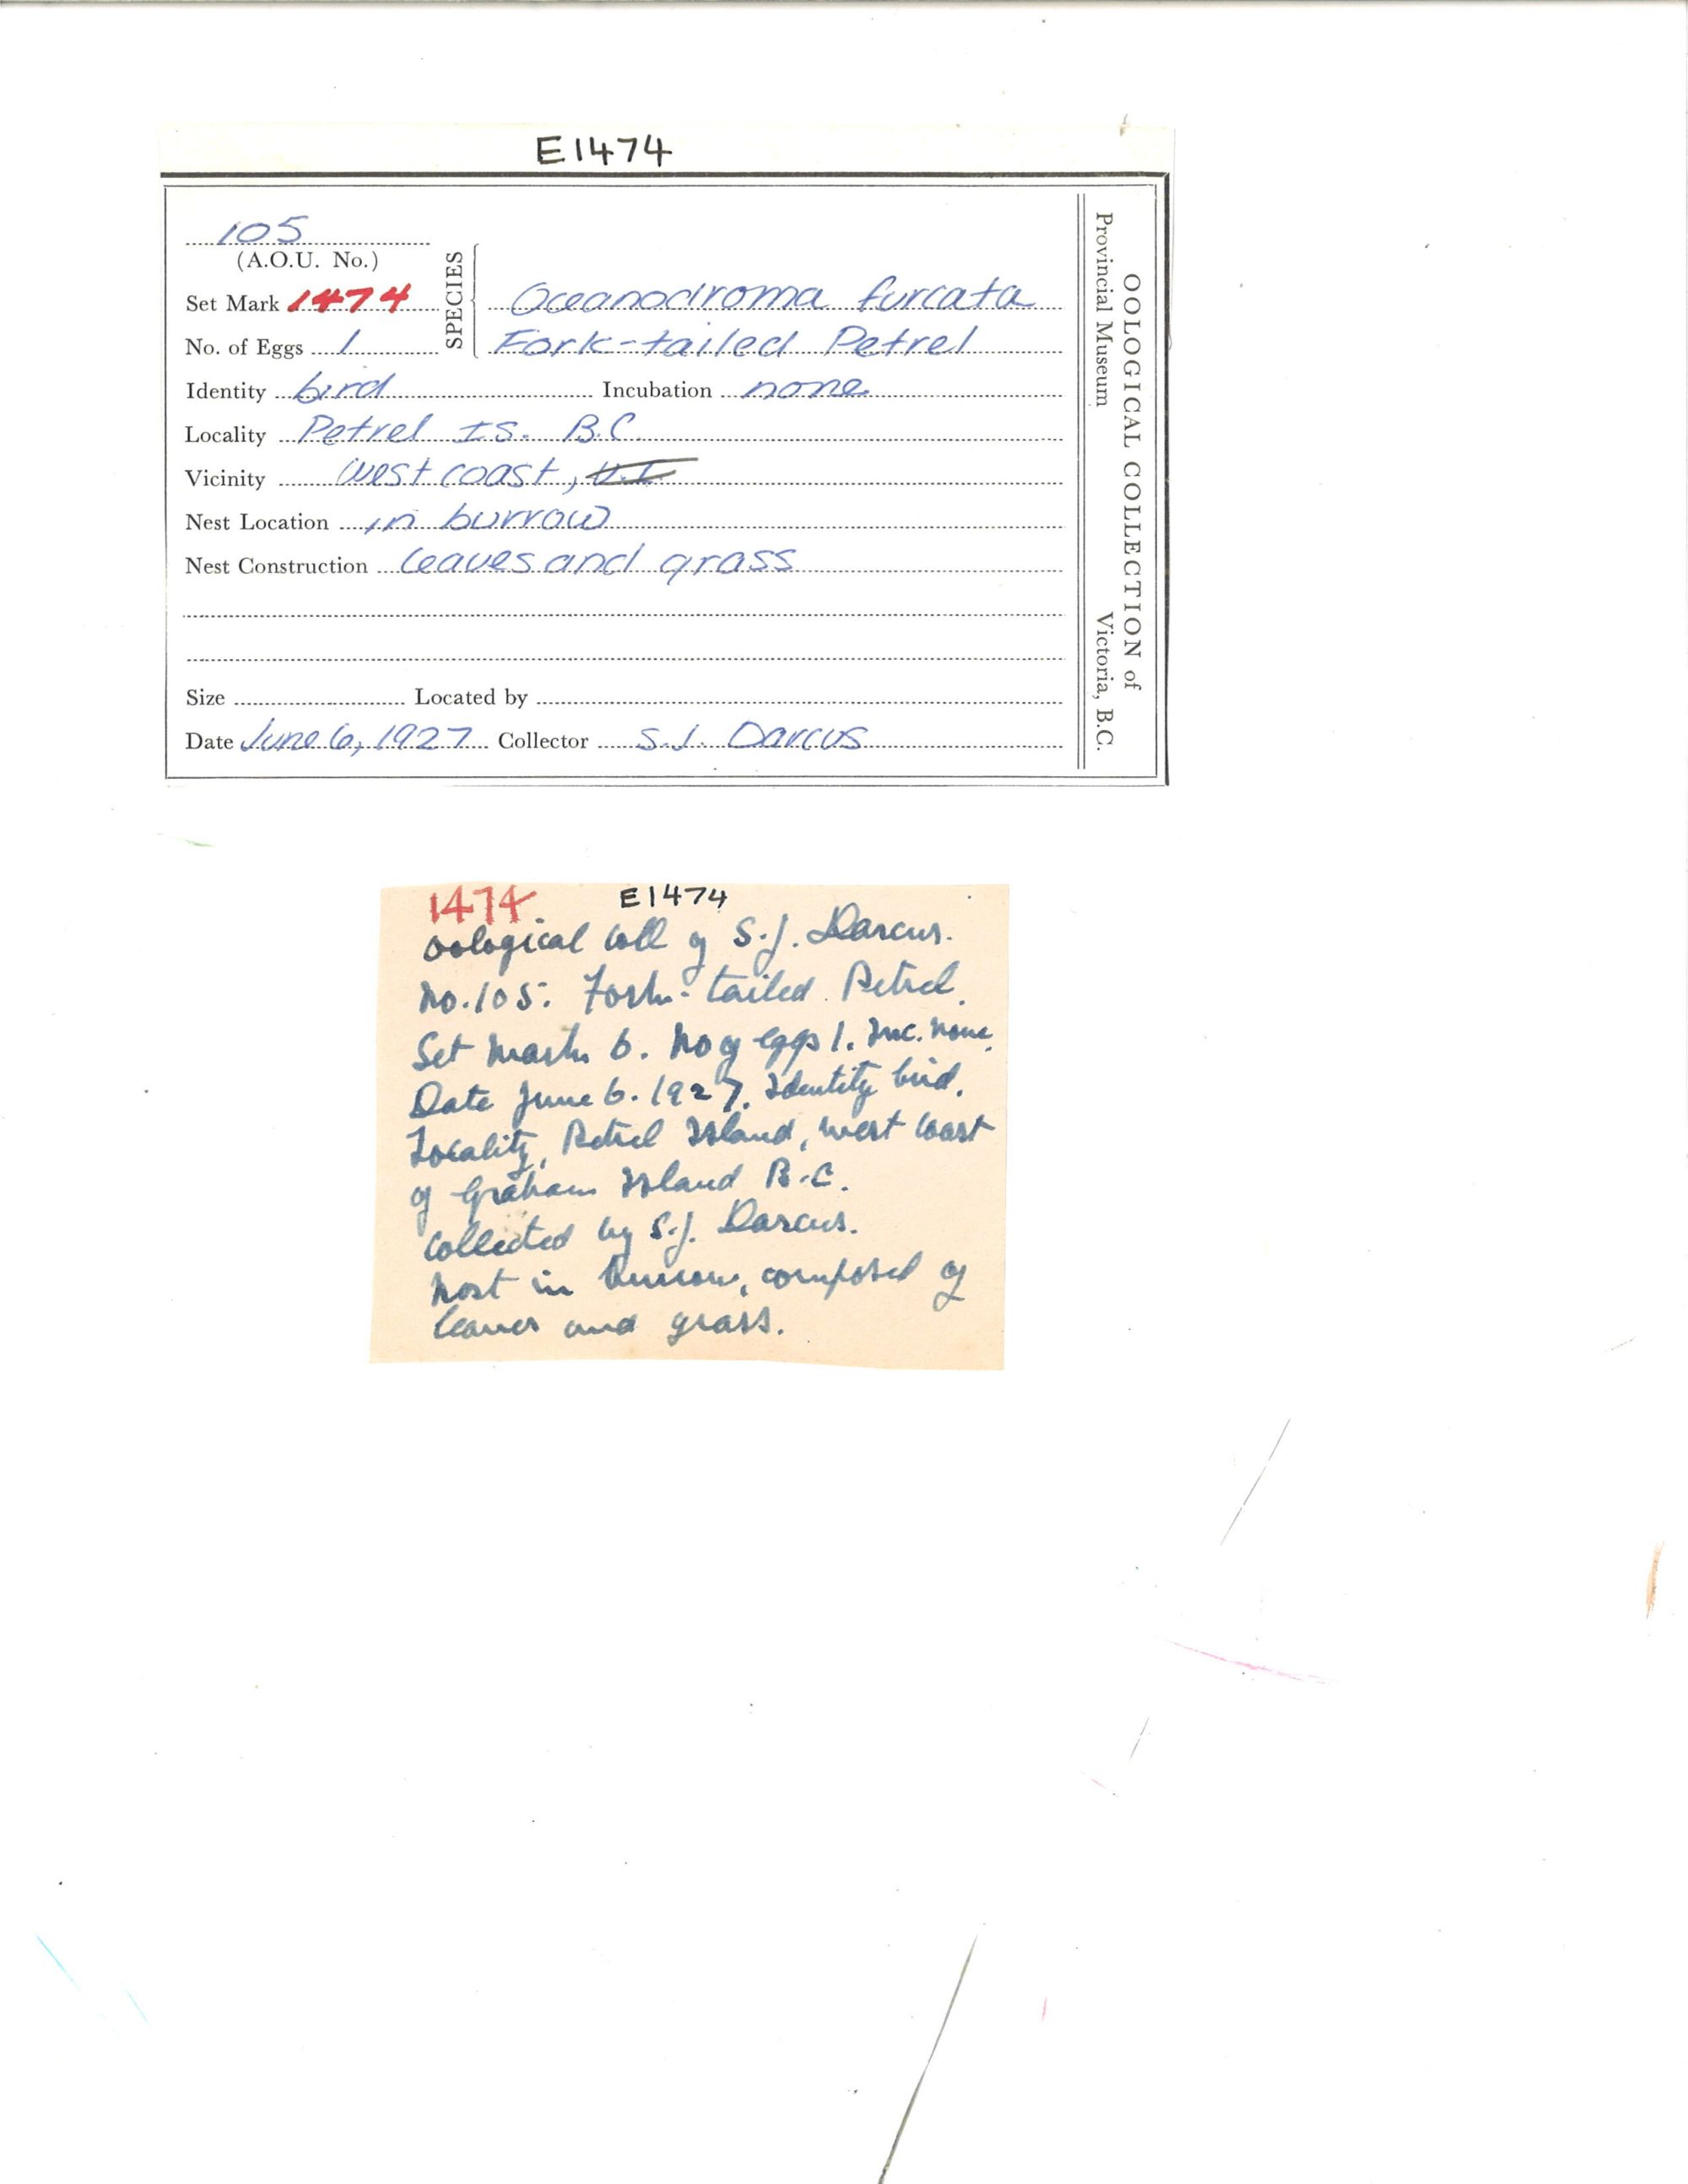 E1474
105
(A.O.U. No.)
SPECIES
Set Mark 1474
Oceanodroma furcata
No. of Eggs 1
Fork-tailed Petrel
Identity bird Incubation none
Locality Petrel Is. B.C.
Vicinity West coast, V.I.
Nest Location in burrow
Nest Construction leaves and grass
Size Located by
Date June 6, 1927 Collector S.J. Darcus
OOLOGICAL COLLECTION of
Provincial Museum Victoria, B.C.
1474. E1474
Oological Coll of S.J. Darcus.
No. 105. Fork-tailed Petrel.
Set Mark 6. No of eggs 1. Inc. none.
Date June 6. 1927. Identity bird.
Locality, Petrel Island, west coast
of Graham Island B.C.
Collected by S.J. Darcus.
Nest in burrow, composed of
leaves and grass.